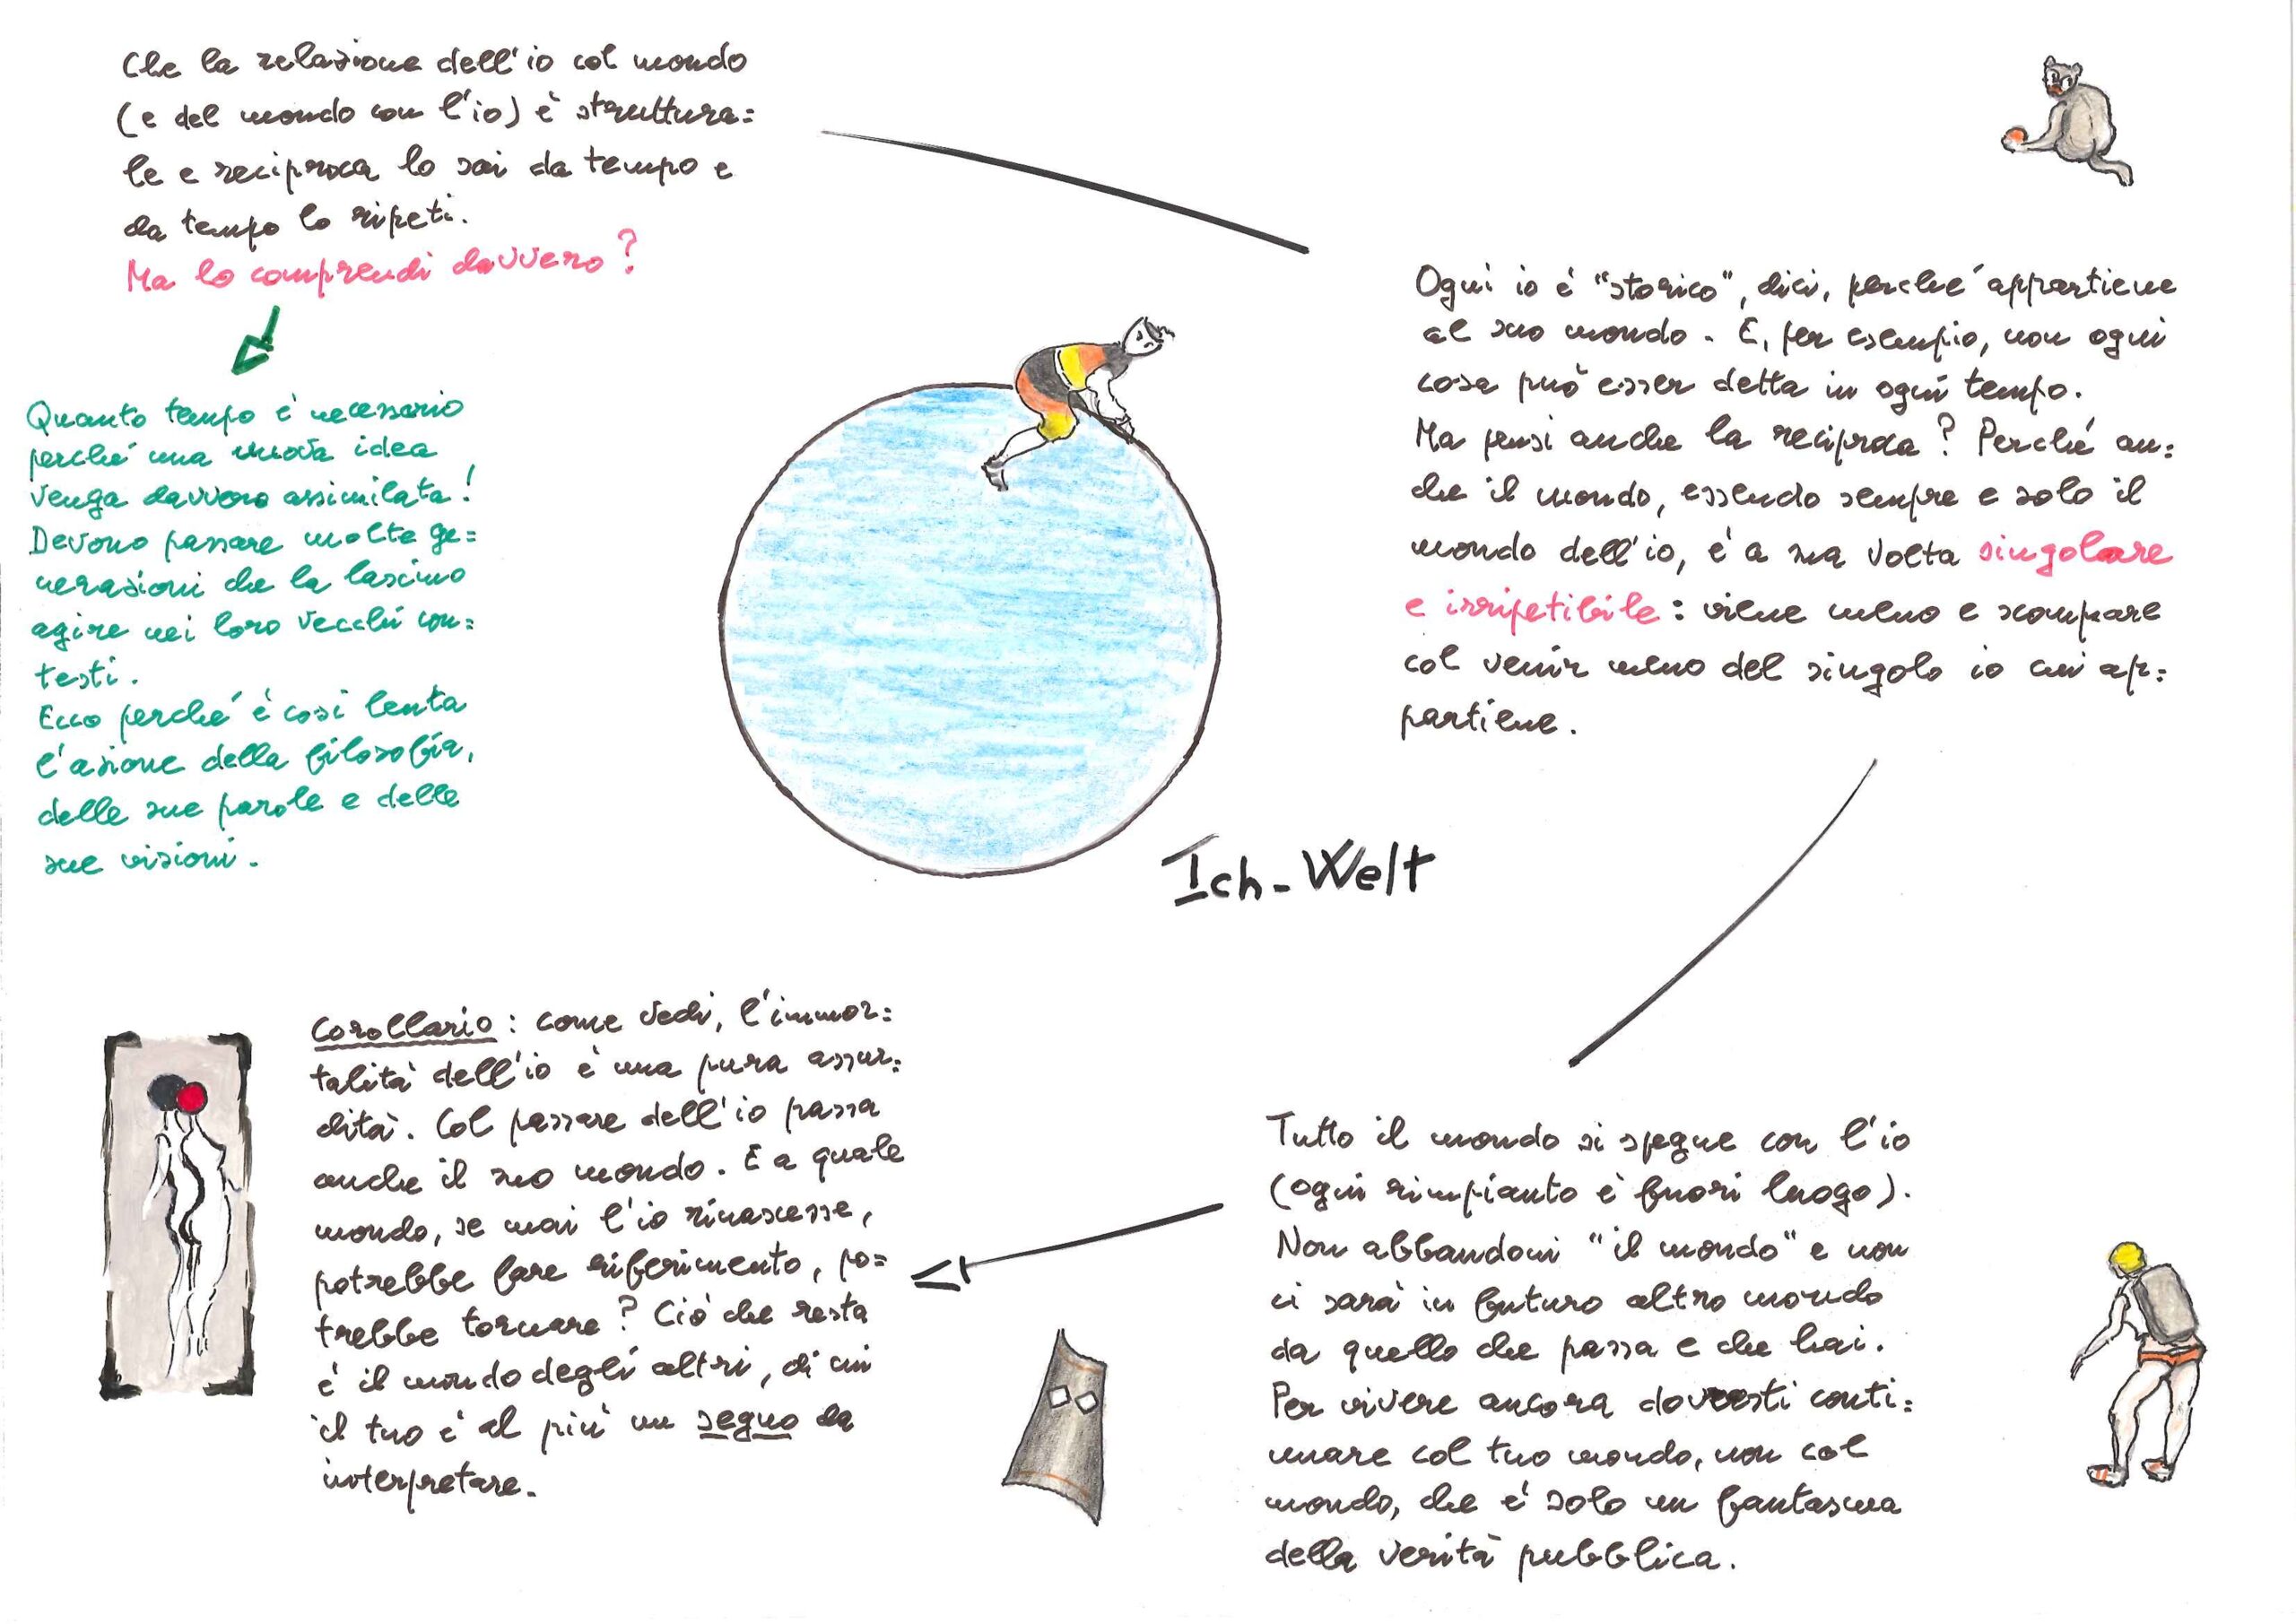 Che la relazione dell'io col mondo
(e del mondo con l'io) è struttura=
le e reciproca lo sai da tempo e
da tempo lo ripeti.
Ma lo comprendi davvero?
Quanto tempo è necessario
perché una nuova idea
venga davvero assimilata!
Devono passare molte ge=
nerazioni che la lascino
agire nei loro vecchi con=
testi.
Ecco perché è così lenta
l'azione della filosofia,
delle sue parole e delle
sue visioni.
Ogni io è "storico", dici, perché appartiene
al suo mondo. E, per esempio, non ogni
cosa può esser detta in ogni tempo.
Ma pensi anche la reciproca? Perché an=
che il mondo, essendo sempre e solo il
mondo dell'io, è a sua volta singolare
e irripetibile: viene meno e scompare
col venir meno del singolo io cui ap=
partiene.
Ich-Welt
Tutto il mondo si spegne con l'io
(ogni rimpianto è fuori luogo).
Non abbandoni "il mondo" e non
ci sarà in futuro altro mondo
da quello che passa e che hai.
Per vivere ancora dovresti conti=
nuare col tuo mondo, non col
mondo, che è solo un fantasma
della verità pubblica.
Corollario: come vedi, l'immor=
talità dell'io è una pura assur=
dità. Col passare dell'io passa
anche il suo mondo. E a quale
mondo, se mai l'io rinascesse,
potrebbe fare riferimento, po=
trebbe tornare? Ciò che resta
è il mondo degli altri, di cui
il tuo è al più un segno da
interpretare.